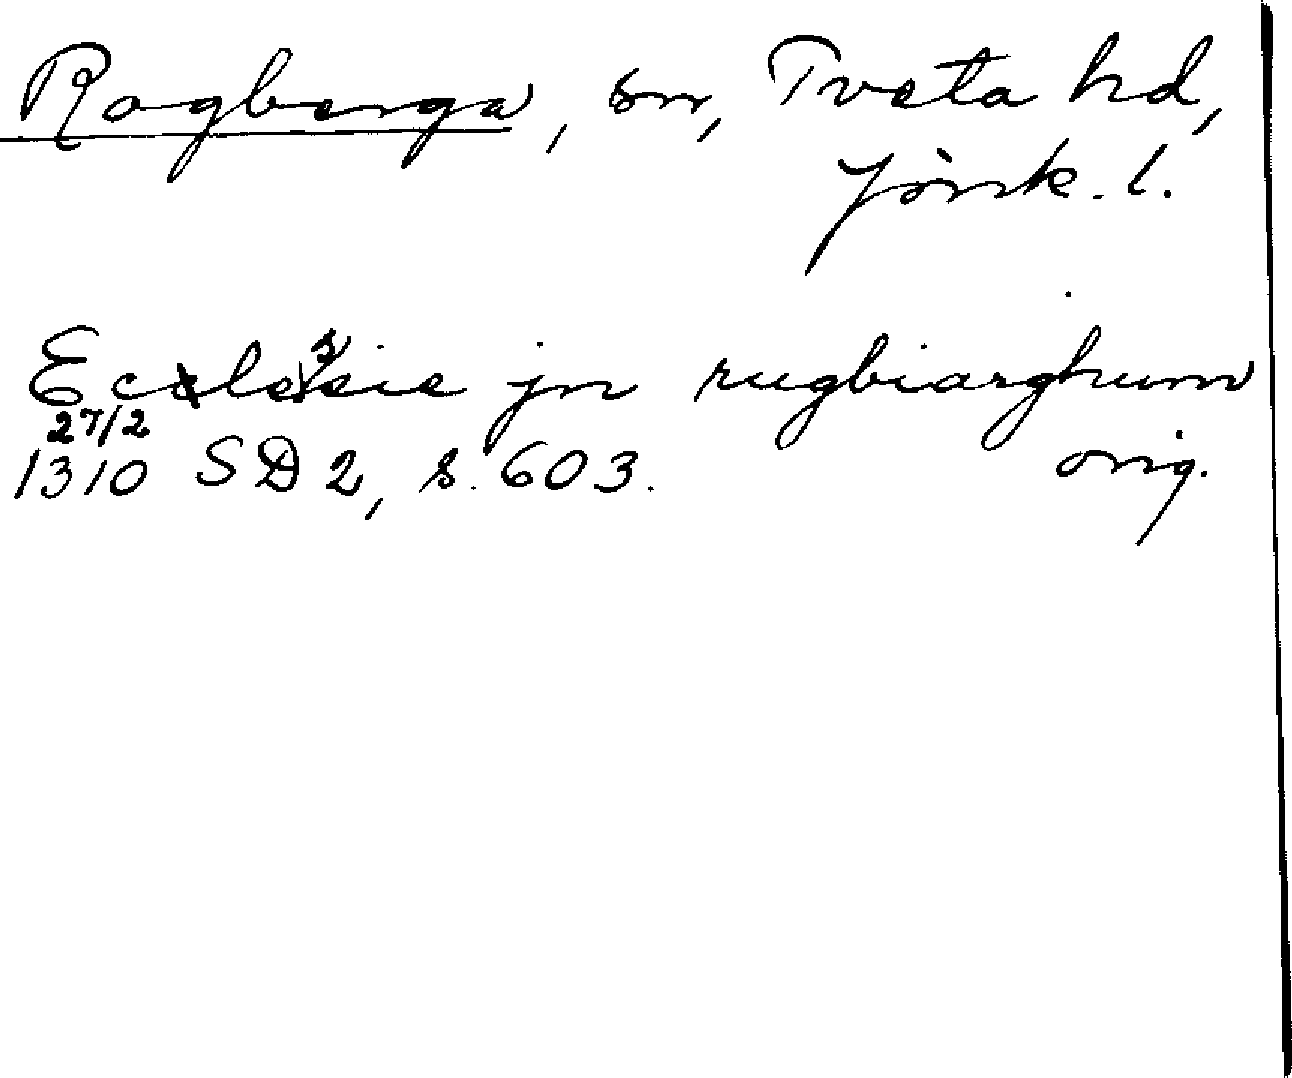 Rogberga, sn, Tveta hd,
Jönk. l.
Ecclessie jn rugbiarghum
27/2
1310 SD 2, s. 603. orig.